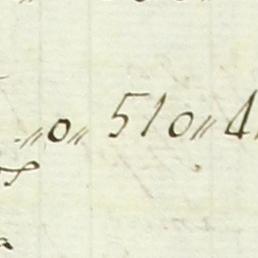 〃0〃 510〃4